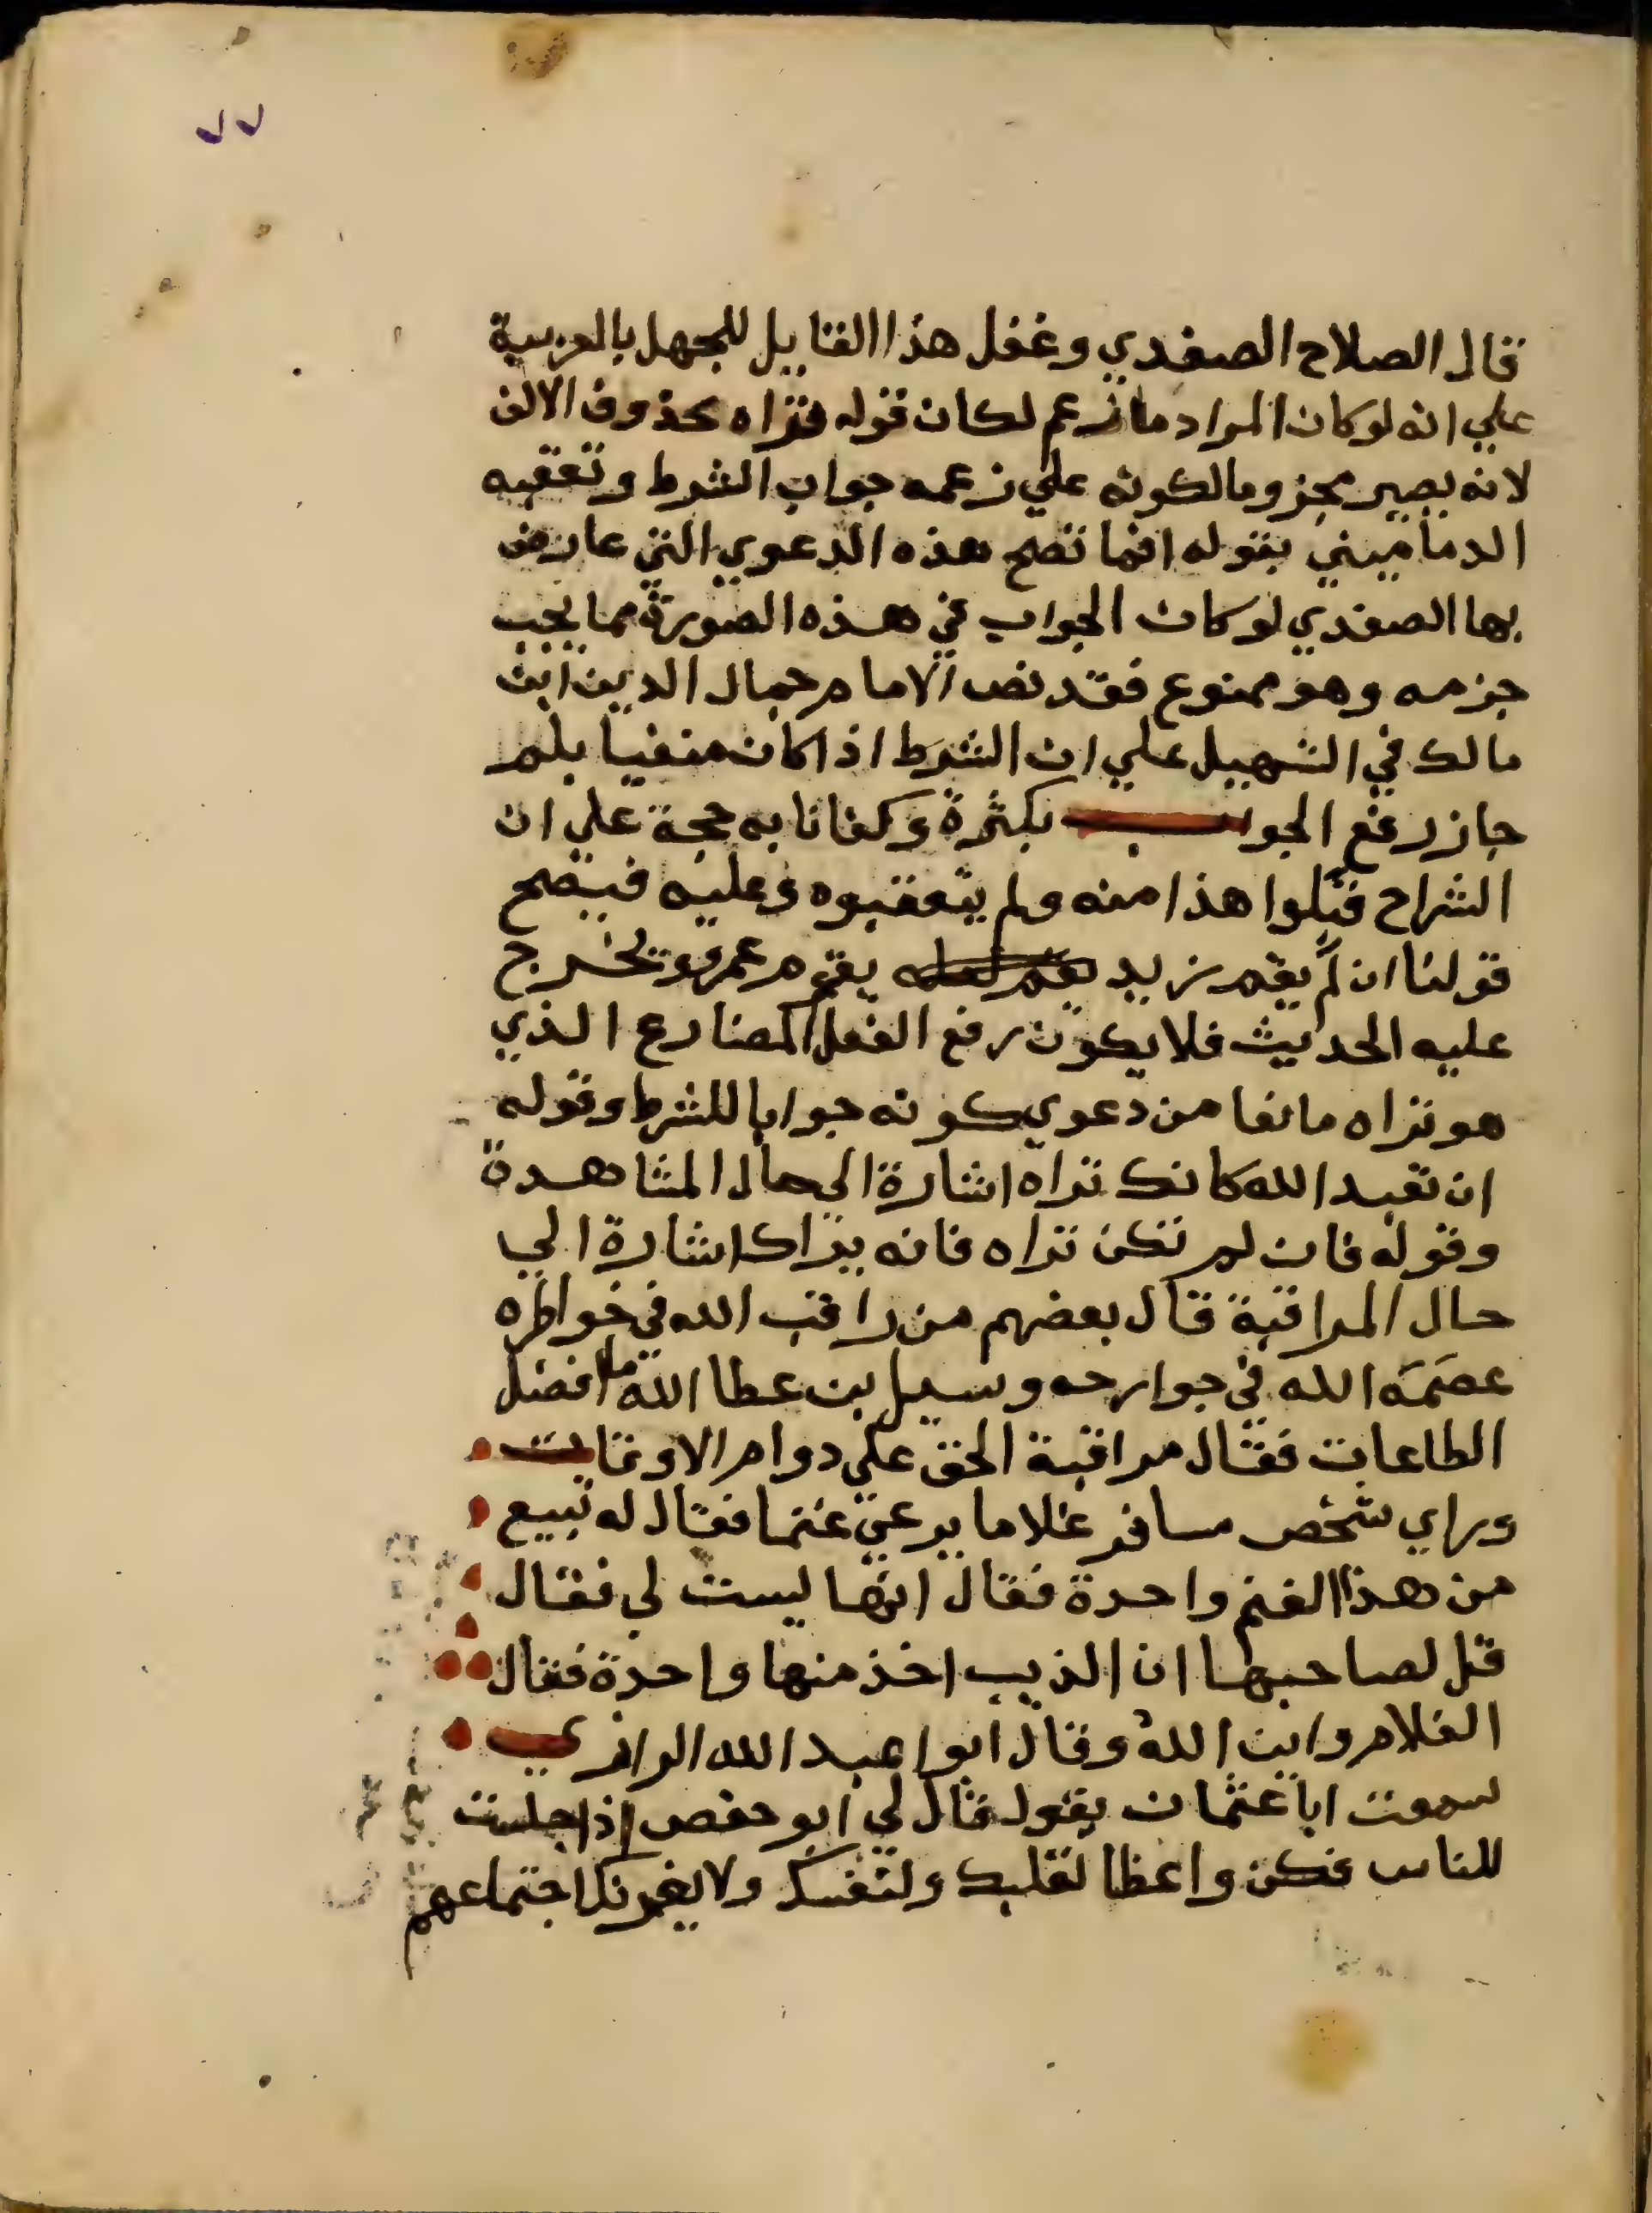 ٧٧
قال الصلاح الصفدي وغفل هذا القايل للجهل بالعربية
علي انه لو كان المراد ما زعم لكان قوله فتراه محذوف الالف
لانه يصير مجزوما لكونه علي زعمه جواب الشرط وتعقبه
الدماميني بقوله انما تصح هذه الدعوي التي عارض
بها الصفدي لو كان الجواب في هذه الصورة مما يجب
جزمه وهو ممنوع فقد نص الامام جمال الدين ابن
مالك في التسهيل علي ان الشرط اذا كان منفيا بلم
جاز رفع الجواب بكثرة وكفانا به حجة علي ان
الشراح قبلوا هذا منه ولم يتعقبوه وعليه فيصح
قولنا ان لم يقم زيد يقوم عمرو ويخرج
عليه الحديث فلا يكون رفع الفعل المضارع الذي
هو تراه مانعا من دعوي كونه جوابا للشرط وقوله
ان تعبد الله كانك تراه اشارة الي حال المشاهدة
وقوله فان لم تكن تراه فانه يراك اشارة الي
حال المراقبة قال بعضهم من راقب الله في خواطره
عصمه الله في جوارحه وسيل بن عطا الله ما افضل
الطاعات فقال مراقبة الحق علي دوام الاوقات
وراي شخص مسافر غلاما يرعي غنما فقال له تبيع
من هذا الغنم واحدة فقال انها ليست لي فقال
قل لصاحبها ان الذيب اخذ منها واحدة فقال
الغلام واين الله وقال ابوا عبد الله الرازي
سمعت ابا عثمان يقول قال لي ابو حفص اذا جلست
للناس فكن واعظا لقلبك ولنفسك ولا يغرنك اجتماعهم